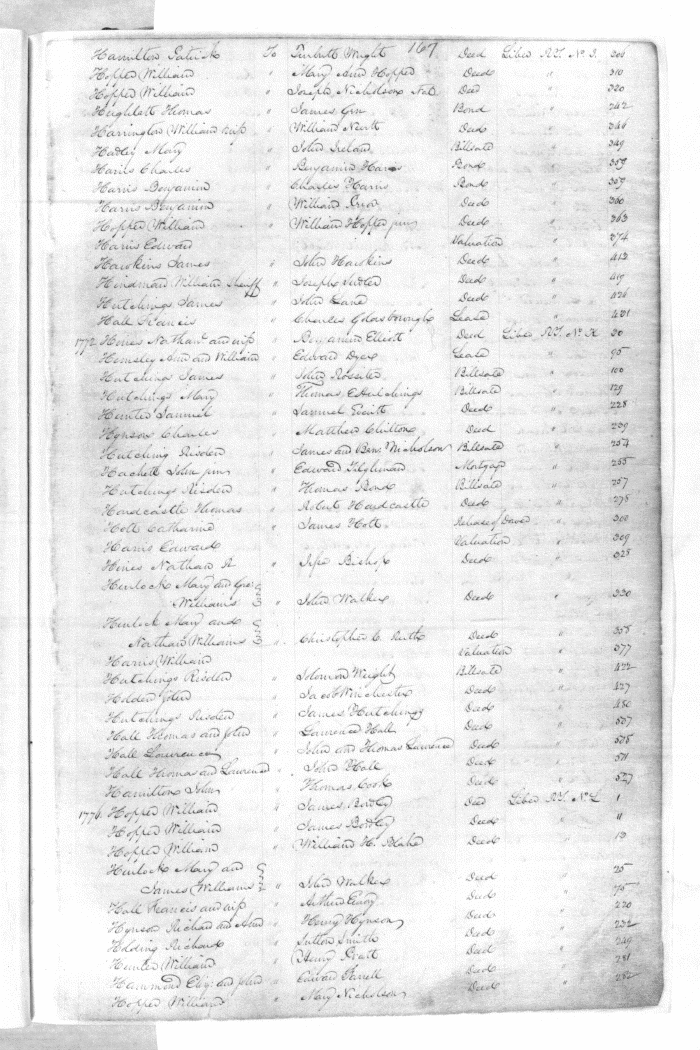 167
Hamilton Patrick To Turbutt Wright Deed Liber R.T. No. I. 306
Hopper William " Mary Ann Hopper Deed " 310
Hopper William " Joseph Nicholson Deed " 320
Heighlatt Thomas " James Bond " 342
Harrington William " William Deed " 346
Hadley Mary " John Ireland Billsale " 349
Harris Charles " Benjamin Harris Bond " 359
Harris Benjamin " Charles Harris Bond " 359
Harris Benjamin " William Deed " 360
Hopper William " William Hopper junr Deed " 363
Harris Edward Valuation " 374
Hawkins James " John Hawkins Deed " 413
Hindman William Sheriff " Joseph Deed " 419
Hutchings James " John Lane Deed " 426
Hall Francis " Charles Goldsborough Lease " 431
1772 Hines Nathan and wife " Benjamin Elliott Deed Liber R.T. No. K 30
Hemsley Ann and William " Edward Dyer Lease " 95
Hutchings James " John Rossiter Billsale " 100
Hutchings Mary " Thomas E Hutchings Billsale " 129
Hunter Samuel " Samuel Deed " 228
Hynson Charles " Matthew Chilton Deed " 239
Hutching Risden " James and Benj Nicholson Billsale " 254
Hackett John junr " Edward Tilghman Mortgage " 255
Hutchings Risden " Thomas Bond Billsale " 257
Hardcastle Thomas " Robert Hardcastle Deed " 275
Holt Catharine " James Holt Release of Dower " 300
Harris Edward Valuation " 309
Hines Nathan " Bishop Deed " 328
Hurlock Mary and
Williams " John Walker Deed " 330
Hurlock Mary and
Nathan Williams " Christopher C. Ruth Deed " 358
Harris William Valuation " 377
Hutchings Risden " Solomon Wright Billsale " 422
Holden John " Jacob Winchester Deed " 427
Hutchings Risden " James Hutchings Deed " 480
Hall Thomas and John " Lawrence Hall Deed " 507
Hall Lawrence " John and Thomas Lawrence Deed " 508
Hall Thomas and Lawrence " John Hall Deed " 511
Hamilton John " Thomas Cook Deed " 527
1776 Hopper William " James Bordley Deed Liber R.T. No. L 1
Hopper William " James Bordley Deed " 11
Hopper William " William H. Blake Deed " 13
Hurlock Mary and
James Williams " John Walker Deed " 25
Hall Francis and wife " Arthur Emory Deed " 75
Hynson Richard and Ann " Henry Hynson Deed " 220
Holding Richard " Sutton Smith Deed " 232
Hunter William " Henry Pratt Deed " 249
Hammond Eliz: and John " Edward Farrell Deed " 281
Hopper William " Mary Nicholson Deed " 282